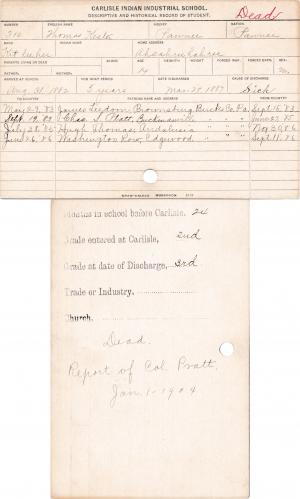 CARLISLE INDIAN INDUSTRIAL SCHOOL.
DESCRIPTIVE AND HISTORICAL RECORD OF STUDENT.
Dead
NUMBER ENGLISH NAME AGENCY NATION
Thomas Pawnee Pawnee
INDIAN NAME HOME ADDRESS
PARENTS LIVING OR DEAD BLOOD AGE HEIGHT WEIGHT FORCED INSP. FORCED EXPR. SEX
14 M
ARRIVED AT SCHOOL FOR WHAT PERIOD DATE DISCHARGED CAUSE OF DISCHARGE
Aug 31, 1882 5 years Mar. 28, 1887 Sick
TO COUNTRY PATRONS NAME AND ADDRESS FROM COUNTRY
May 29, 83 James Leedom, Brownsburg Bucks Co. Pa. Sept 16, 83
Sept. 19, 83 Chas. Platt, " " June 27, 85
July 28, 85 Hugh Thomas, Andalusia " " Nov 30, 85
Jun 26, 86 Washington Row, Edgewood " " Sept 11, 86
Months in school before Carlisle, 24
Grade entered at Carlisle, 2nd
Grade at date of Discharge, 3rd
Trade or Industry,
Church,
Dead.
Report of Col. Pratt.
Jan. 1 - 1904